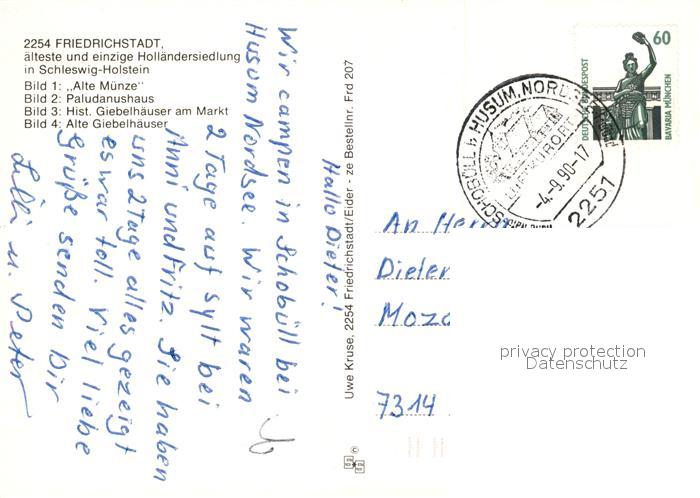 2254 FRIEDRICHSTADT,
älteste und einzige Holländersiedlung
in Schleswig-Holstein
Bild 1: „Alte Münze“
Bild 2: Paludanushaus
Bild 3: Hist. Giebelhäuser am Markt
Bild 4: Alte Giebelhäuser
Hallo Dieter!
Wir campen in Schobüll bei
Husum Nordsee. Wir waren
2 Tage auf Sylt bei
Anni und Fritz. Sie haben
uns 2 Tage alles gezeigt
es war toll. Viel liebe
Grüße senden Dir
Lilli u. Peter
Uwe Kruse, 2254 Friedrichstadt/Eider - ze Bestellnr. Frd 207
60
DEUTSCHE BUNDESPOST
BAVARIA MÜNCHEN
SCHOBÜLL b HUSUM, NORDSEE
LUFTKURORT
-4.-9.90-17
2251
An Herrn
Dieter
Moza
7314
privacy protection
Datenschutz